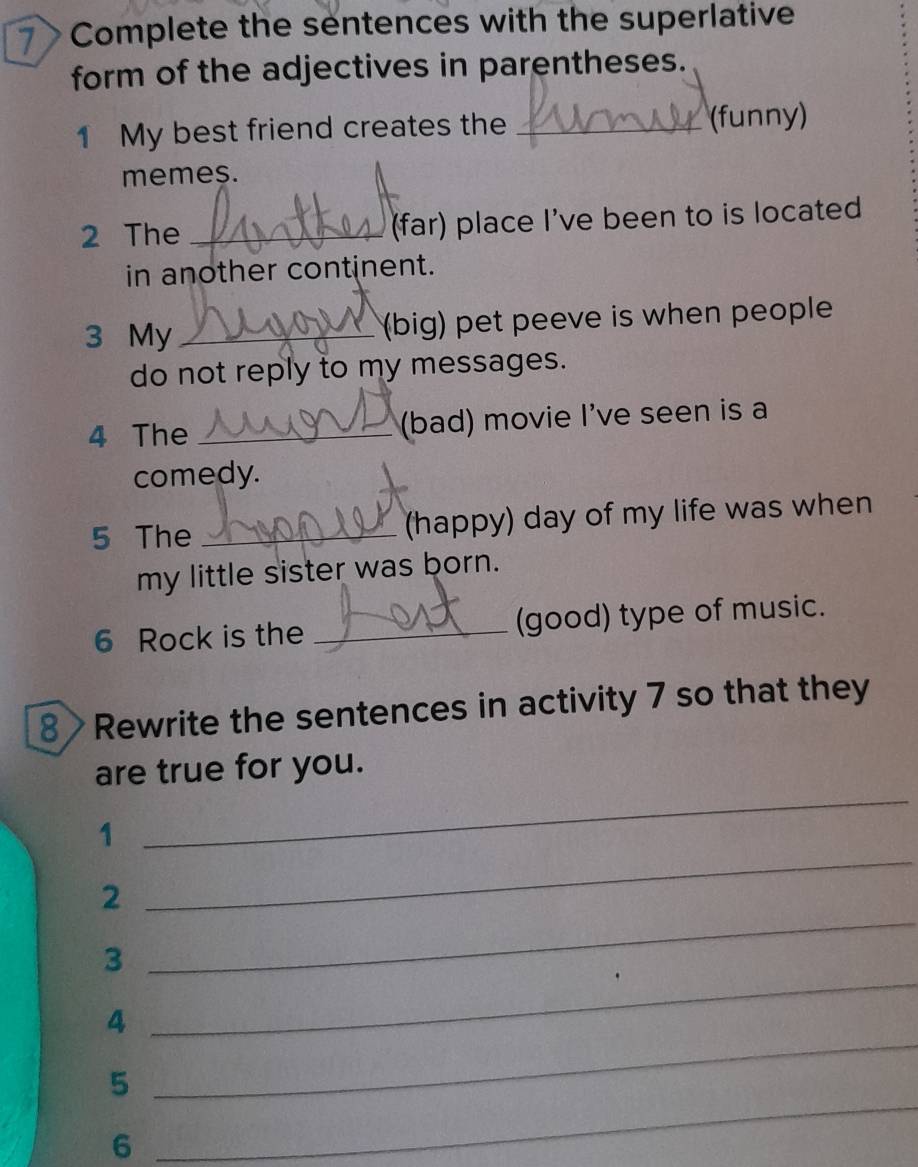 7 Complete the sentences with the superlative
form of the adjectives in parentheses.
1 My best friend creates the funniest (funny)
memes.
2 The farthest (far) place I've been to is located
in another continent.
3 My biggest (big) pet peeve is when people
do not reply to my messages.
4 The worst (bad) movie I've seen is a
comedy.
5 The happiest (happy) day of my life was when
my little sister was born.
6 Rock is the best (good) type of music.
8 Rewrite the sentences in activity 7 so that they
are true for you.
1
2
3
4
5
6